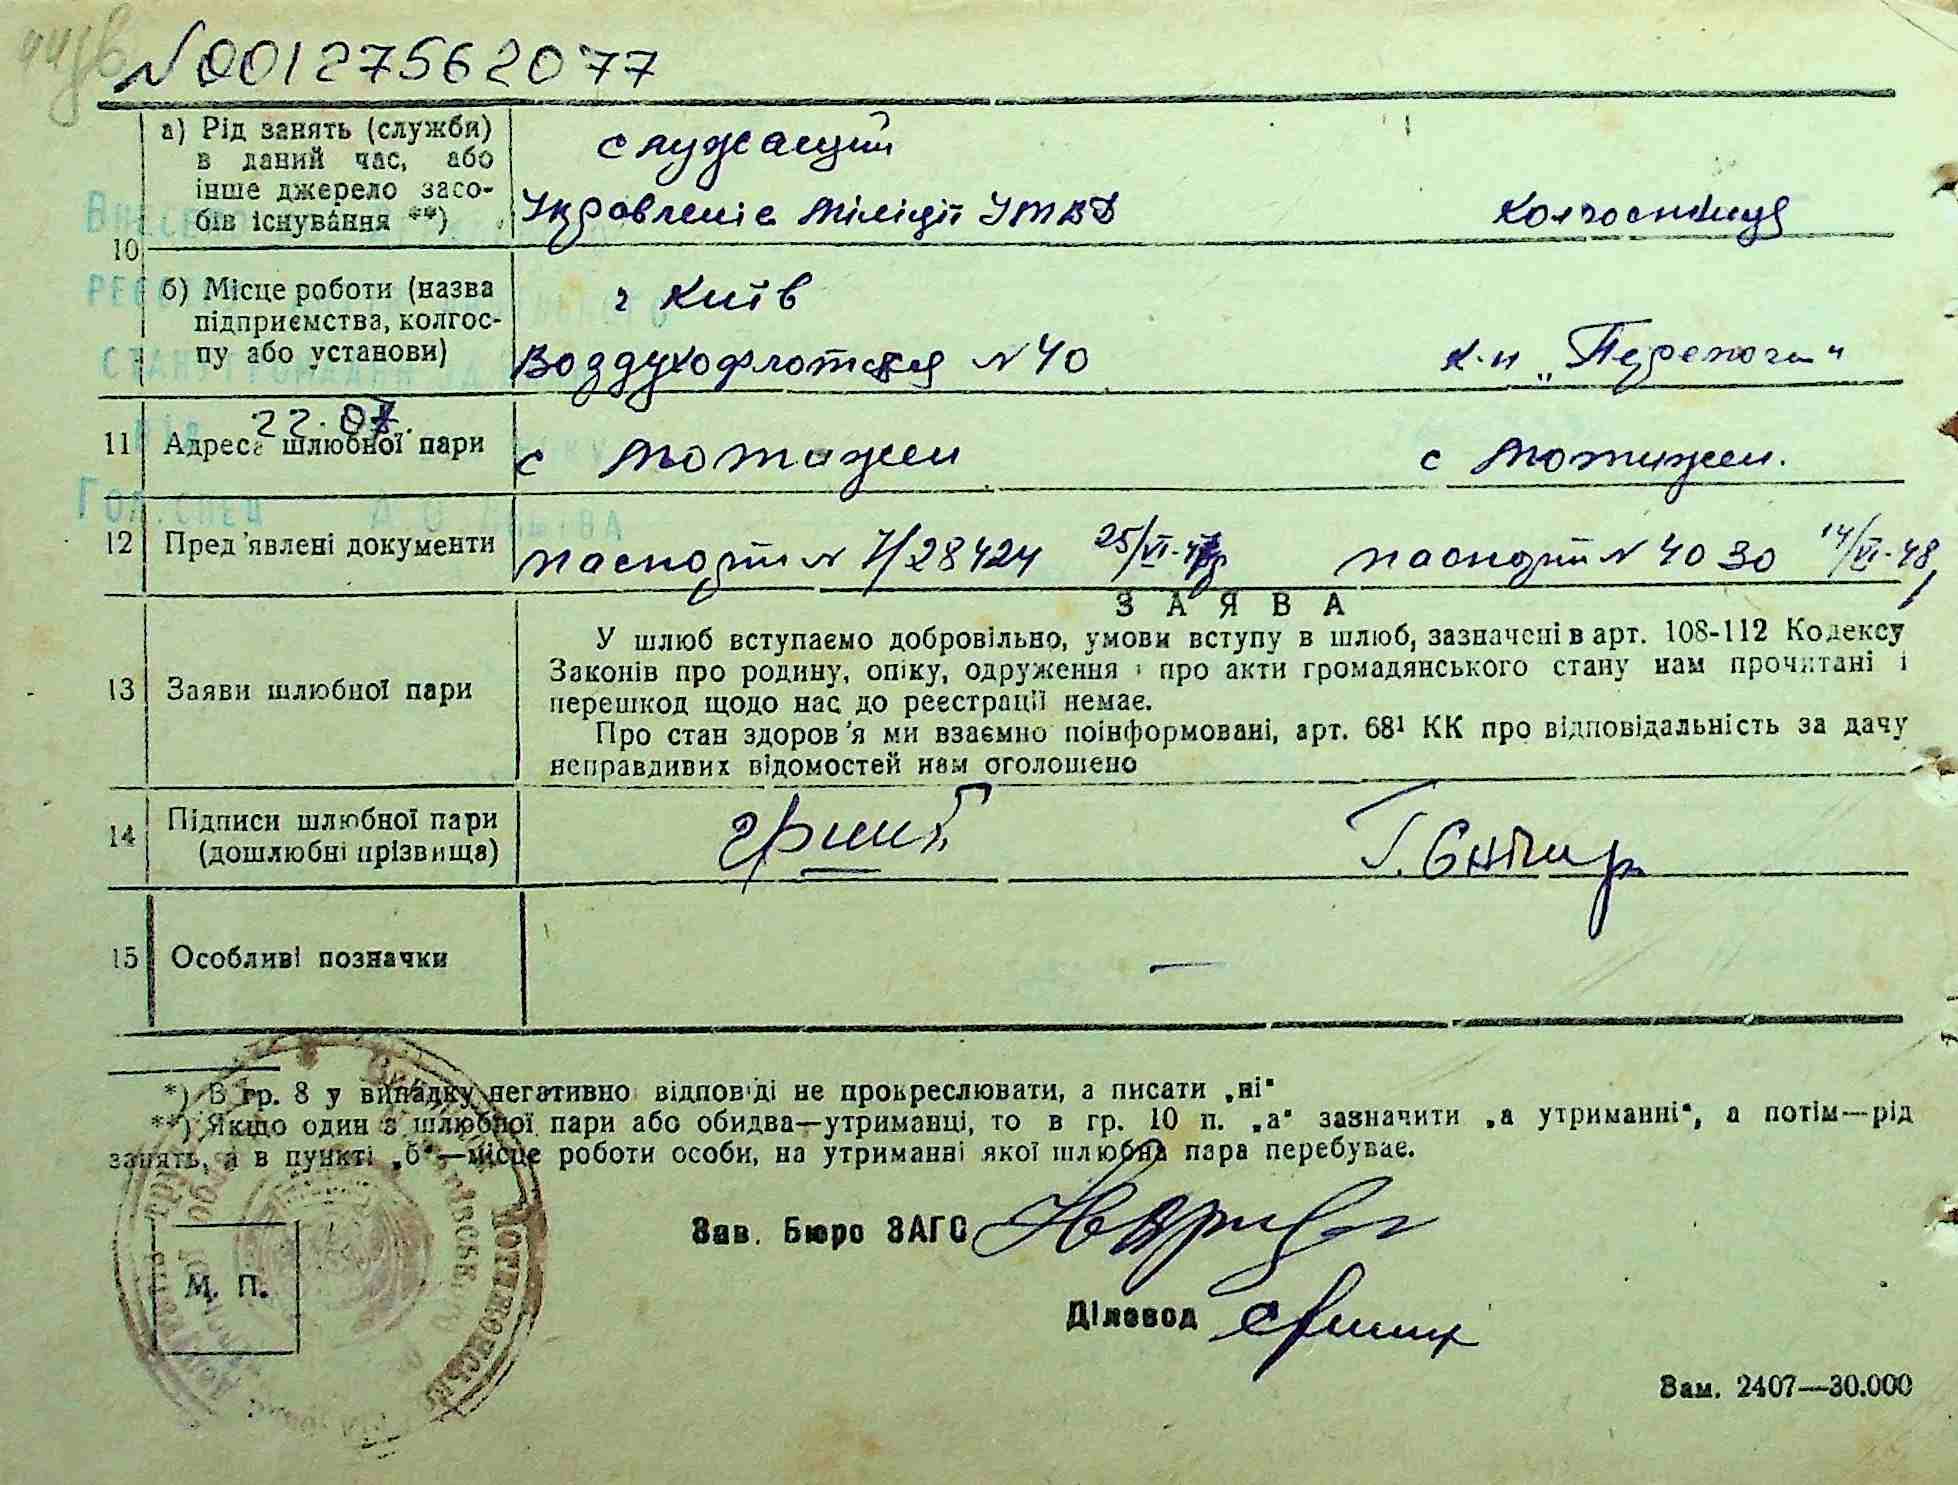 N00127562077
а) Рід занять (служби) в даний час, або інше джерело засобів існування **)
служащий
Управленіє Міліції УМВД
колгоспниця
10
б) Місце роботи (назва підприємства, колгоспу або установи)
г Київ
Воздухофлотская N 40
к-п „Перемога"
22.07.
11 Адреса шлюбної пари
с Мотижин
с Мотижин.
12 Пред'явлені документи
паспорт N 7/28424 25/VI-47р
паспорт N 4030 14/VI-48р
ЗАЯВА
13 Заяви шлюбної пари
У шлюб вступаємо добровільно, умови вступу в шлюб, зазначені в арт. 108-112 Кодексу
Законів про родину, опіку, одруження і про акти громадянського стану нам прочитані і
перешкод щодо нас до реєстрації немає.
Про стан здоров'я ми взаємно поінформовані, арт. 68¹ КК про відповідальність за дачу
неправдивих відомостей нам оголошено
14 Підписи шлюбної пари
(дошлюбні прізвища)
15 Особливі позначки
—
*) В гр. 8 у випадку негативно відповіді не прокреслювати, а писати „ні"
**) Якщо один з шлюбної пари або обидва—утриманці, то в гр. 10 п. „а" зазначити „а утриманні", а потім—рід
занять, а в пункті „б"—місце роботи особи, на утриманні якої шлюбна пара перебуває.
Зав. Бюро ЗАГС
М. П.
Діловод
Зам. 2407—30.000